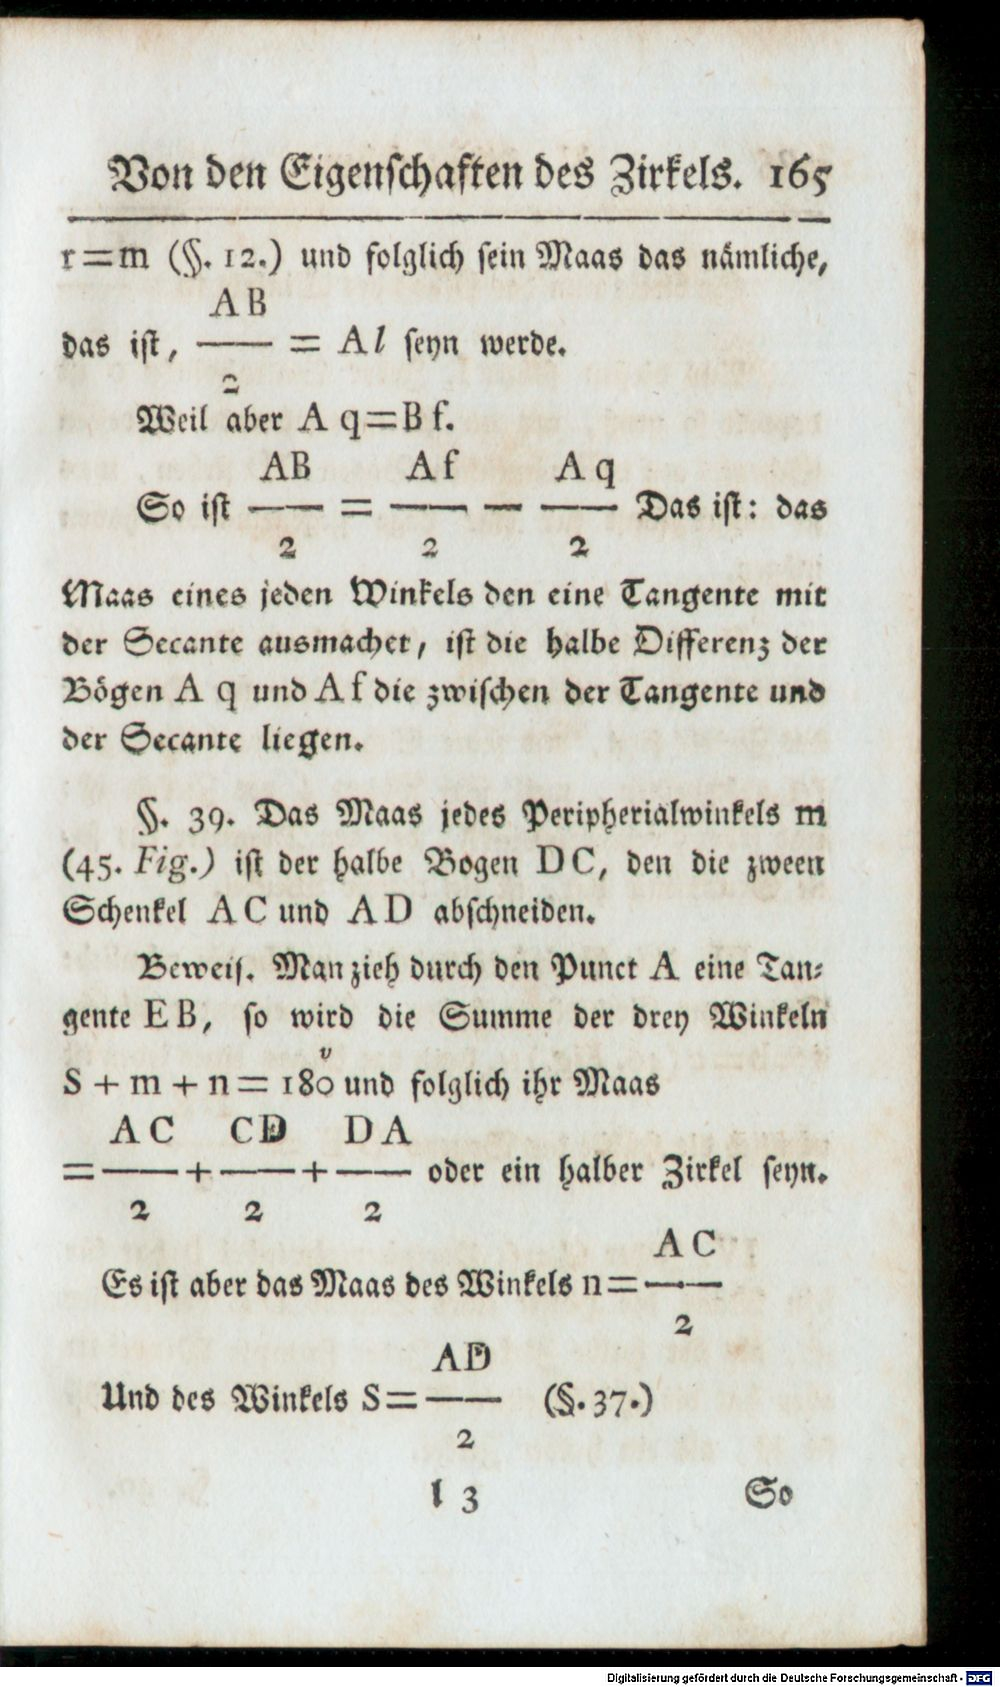 Von den Eigenschaften des Zirkels. 165
r=m (§. 12.) und folglich sein Maas das nämliche,
AB
das ist, —— = Al seyn werde.
2
Weil aber A q=B f.
AB Af Aq
So ist —— = —— — —— Das ist: das
2 2 2
Maas eines jeden Winkels den eine Tangente mit
der Secante ausmachet, ist die halbe Differenz der
Bögen A q und A f die zwischen der Tangente und
der Secante liegen.
§. 39. Das Maas jedes Peripherialwinkels m
(45. Fig.) ist der halbe Bogen DC, den die zween
Schenkel AC und AD abschneiden.
Beweis. Man zieh durch den Punct A eine Tan⸗
gente EB, so wird die Summe der drey Winkeln
S + m + n = 180° und folglich ihr Maas
AC CD DA
= —— + —— + —— oder ein halber Zirkel seyn.
2 2 2
AC
Es ist aber das Maas des Winkels n = ——
2
AD
Und des Winkels S = —— (§. 37.)
2
l 3 So
Digitalisierung gefördert durch die Deutsche Forschungsgemeinschaft - DFG